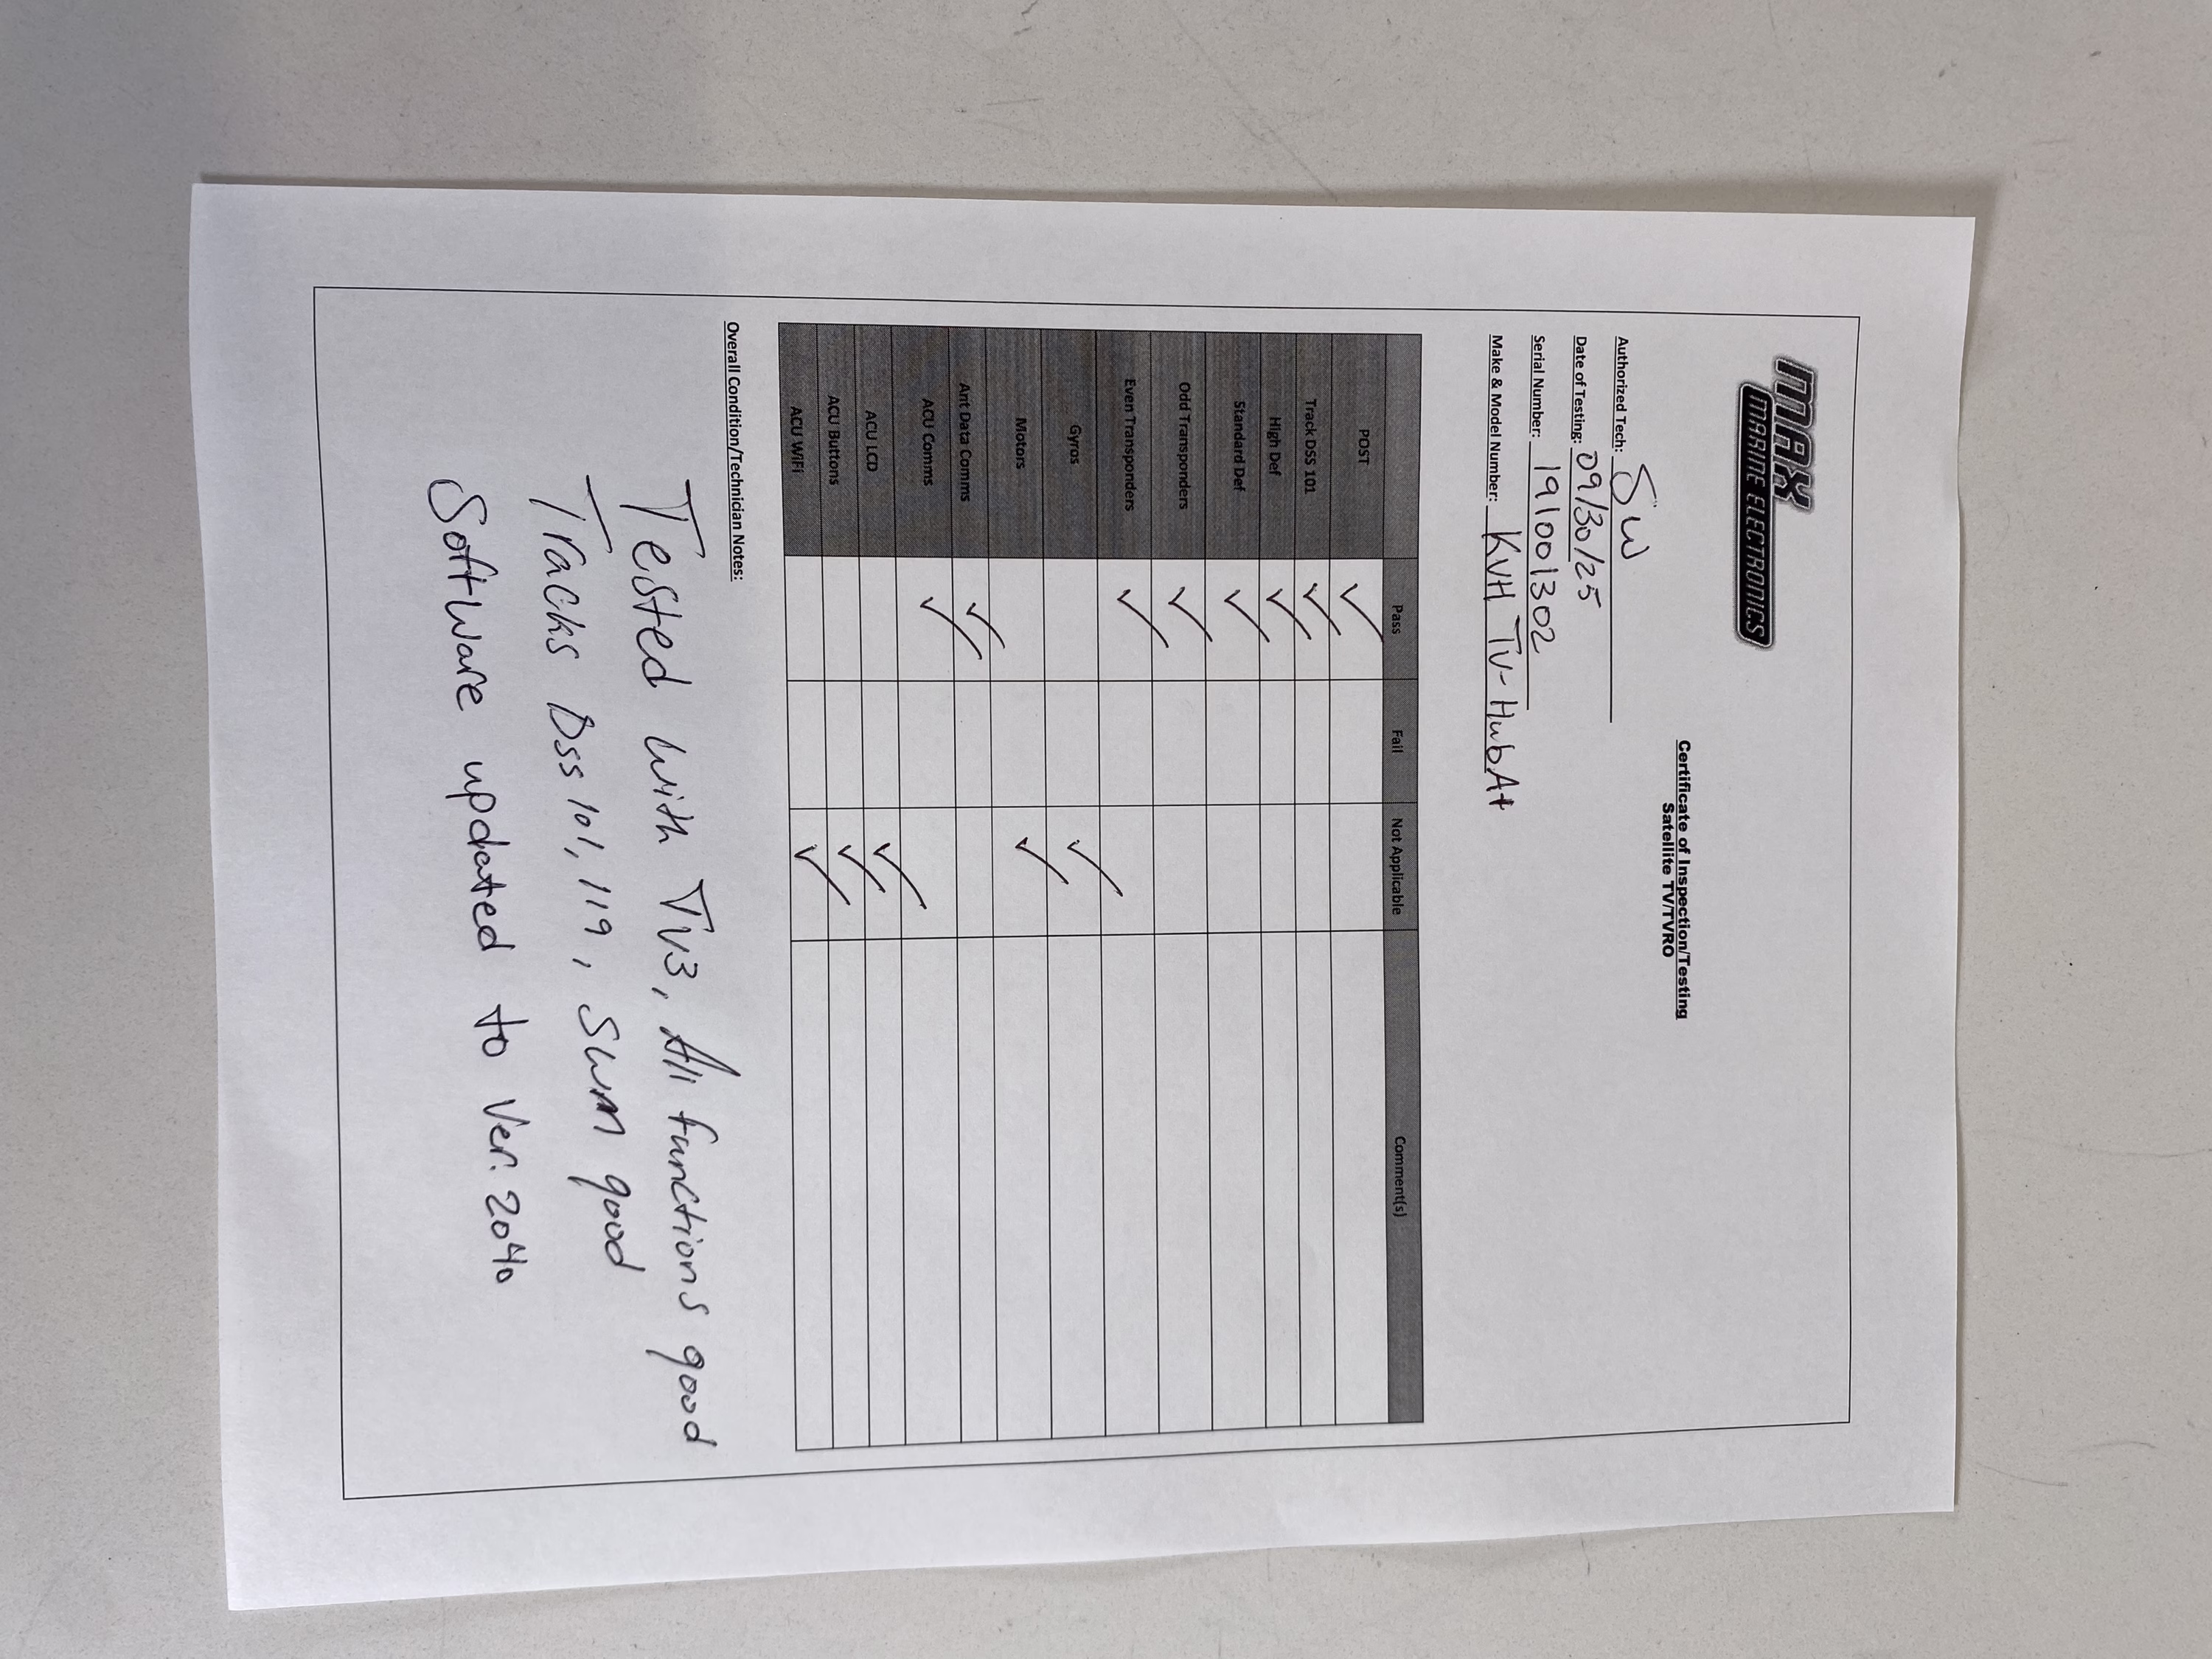 MAX
MARINE ELECTRONICS
Certificate of Inspection/Testing
Satellite TV/TVRO
Authorized Tech: SW
Date of Testing: 09/30/25
Serial Number: 191001302
Make & Model Number: KVH TV-HubA+
Pass Fail Not Applicable Comment(s)
POST ✓
Track DSS 101 ✓
High Def ✓
Standard Def ✓
Odd Transponders ✓
Even Transponders ✓
Gyros ✓
Motors ✓
Ant Data Comms ✓
ACU Comms ✓
ACU LCD ✓
ACU Buttons ✓
ACU WiFi ✓
Overall Condition/Technician Notes:
Tested with TV3, All functions good
Tracks Dss 101, 119, SWM good
Software updated to Ver. 2040